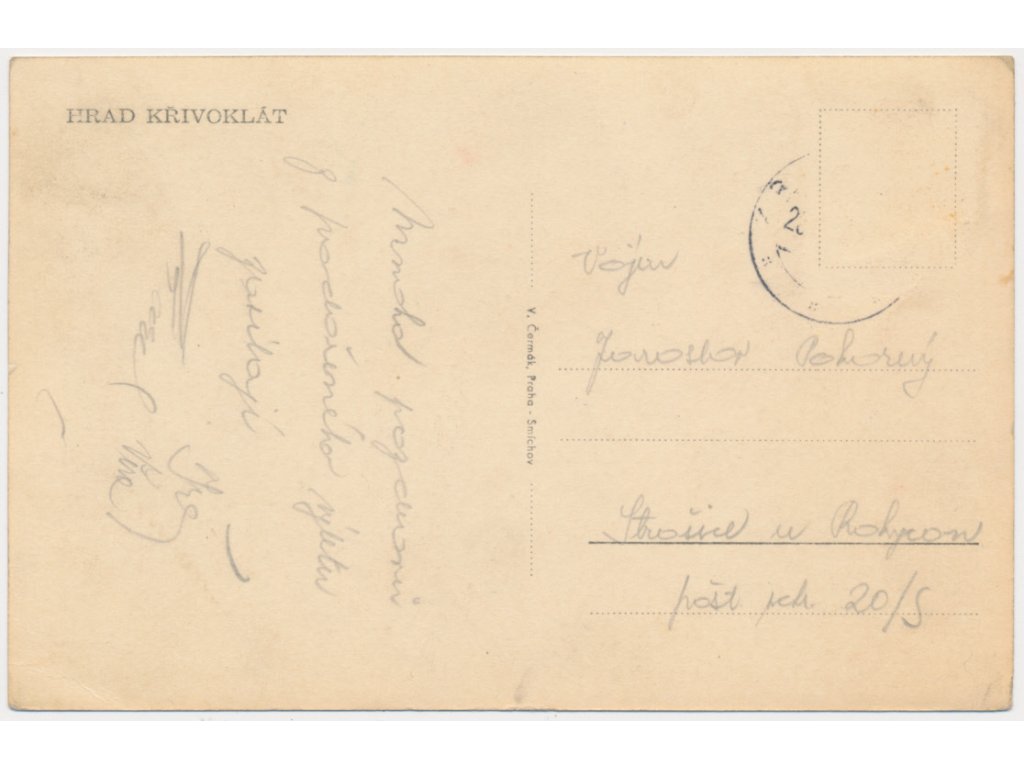 HRAD KŘIVOKLÁT
Mnoho pozdravů
z podařeného výletu
posílají
V. Čermák, Praha - Smíchov
Vojín
Jaroslav Pokorný
Strašice u Rokycan
pošt. sch. 20/5